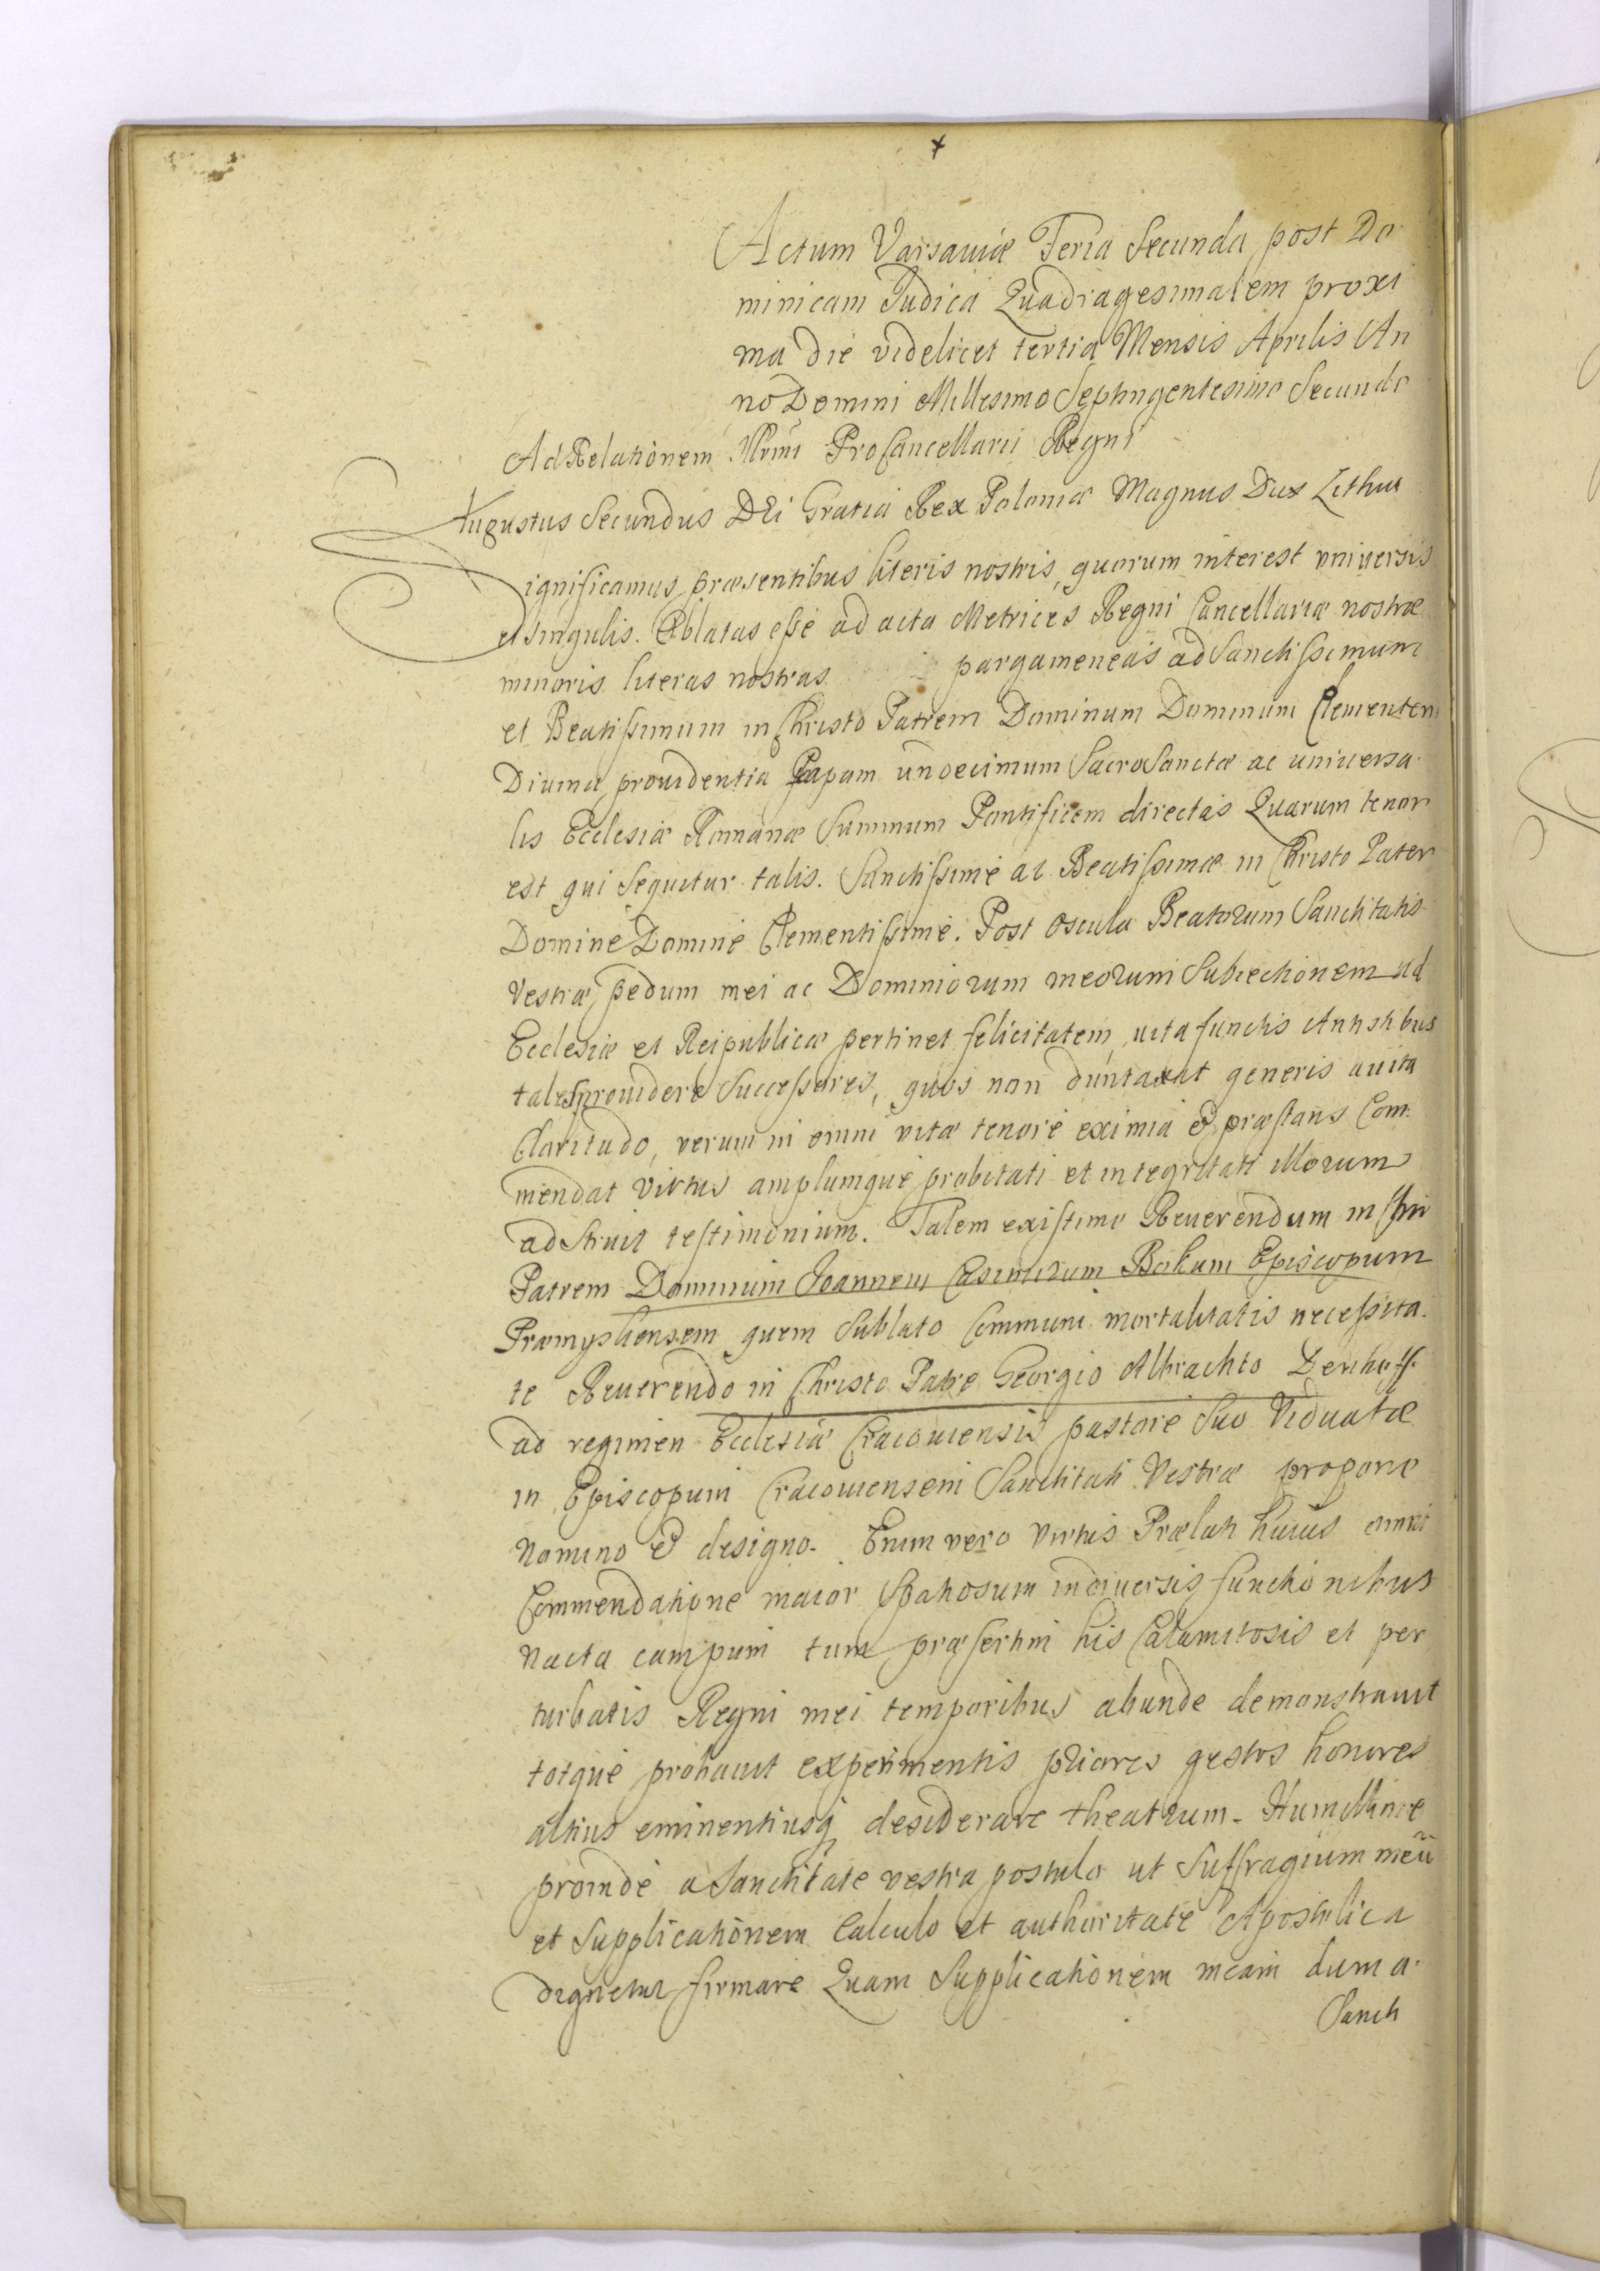 Actum Varsaviæ Feria Secunda post Do
minicam Judica Quadragesimalem proxi
ma die videlicet tertia Mensis Aprilis An
no Domini Millesimo Septingentesimo Secundo
Ad Relationem Illrmi ProCancellarii Regni
Augustus Secundus DEi Gratia Rex Poloniæ Magnus Dux Lithua
Significamus præsentibus literis nostris, quorum interest vniuersis
et singulis. Oblatas esse ad acta Metrices Regni Cancellariæ nostræ
minoris literas nostras pargameneas ad Sanctissimum
et Beatissimum in Christo Patrem Dominum Dominum Clementem
Diuina prouidentia Papam undecimum SacroSanctæ ac uniuersa
lis Ecclesiæ Romanæ Summum Pontificem directas Quarum tenor
est qui sequitur talis. Sanctissime ac Beatissimæ in Christo Pater
Domine Domine Clementissime. Post oscula Beatorum Sanctitatis
Vestræ pedum mei ac Dominiorum meorum Subiectionem ad
Ecclesiæ et Reipublicæ pertinet felicitatem, uita functis Antistibus
tales prouidere Successores, quos non duntaxat generis auita
Claritudo, verum in omni vitæ tenore eximia & præstans Com
mendat virtus amplumque probitati et integritati Morum
adstruit testimonium. Talem existimo Reuerendum in Chri
Patrem Dominum Joannem Casimirum Bokum Episcopum
Præmysliensem quem Sublato Communi mortalitatis necessita
te Reuerendo in Christo Patre Georgio Albrachto Denhoff
ad regimen Ecclesiæ Cracouiensis pastore Suo Viduatæ
in Episcopum Cracouiensem Sanctitati Vestræ propone
Nomino & designo. Enim vero Virtus Prælati huius omni
Commendatione maior Spatiosum in diuersis functionibus
Nacta campum tum præsertim his Calamitosis et per
turbatis Regni mei temporibus abunde demonstrauit
totque probauit experimentis priores gestos honores
altius eminentiusq desiderare theatrum. Humillime
proinde a Sanctitate vestra postulo ut Suffragium meũ
et Supplicationem Calculo et authoritate Apostolica
dignetur firmare Quam Supplicationem meam dum a
Sancti